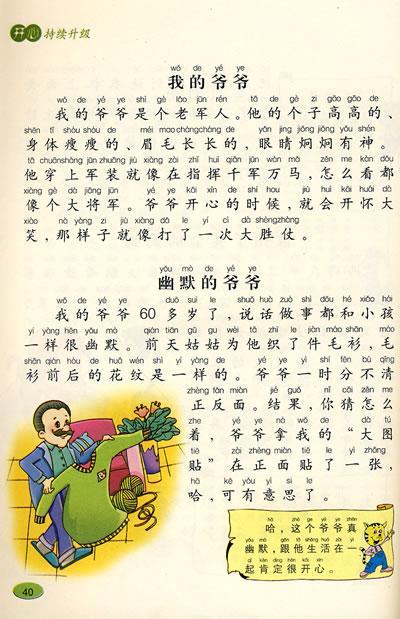 开心 持续升级
wǒ de yé ye
我的爷爷
wǒ de yé ye shì gè lǎo jūn rén tā de gè zi gāo gāo de
我的爷爷是个老军人。他的个子高高的、
shēn tǐ shòu shòu de méi mao cháng cháng de yǎn jing jiǒng jiǒng yǒu shén
身体瘦瘦的、眉毛长长的，眼睛炯炯有神。
tā chuān shàng jūn zhuāng jiù xiàng zài zhǐ huī qiān jūn wàn mǎ zěn me kàn dōu
他穿上军装就像在指挥千军万马，怎么看都
xiàng gè dà jiàng jūn yé ye kāi xīn de shí hou jiù huì kāi huái dà
像个大将军。爷爷开心的时候，就会开怀大
xiào nà yàng zi jiù xiàng dǎ le yí cì dà shèng zhàng
笑，那样子就像打了一次大胜仗。
yōu mò de yé ye
幽默的爷爷
wǒ de yé ye duō suì le shuō huà zuò shì dōu hé xiǎo hái
我的爷爷60多岁了，说话做事都和小孩
yí yàng hěn yōu mò qián tiān gū gu wèi tā zhī le jiàn máo shān máo
一样很幽默。前天姑姑为他织了件毛衫，毛
shān qián hòu de huā wén shì yí yàng de yé ye yì shí fēn bù qīng
衫前后的花纹是一样的。爷爷一时分不清
zhèng fǎn miàn jié guǒ nǐ cāi zěn me
正反面。结果，你猜怎么
zhe yé ye ná wǒ de dà tú
着，爷爷拿我的“大图
tiē zài zhèng miàn tiē le yì zhāng
贴”在正面贴了一张，
hā kě yǒu yì si le
哈，可有意思了。
hā zhè ge yé ye zhēn
哈，这个爷爷真
yōu mò gēn tā shēng huó zài yì
幽默，跟他生活在一
qǐ kěn dìng hěn kāi xīn
起肯定很开心。
40